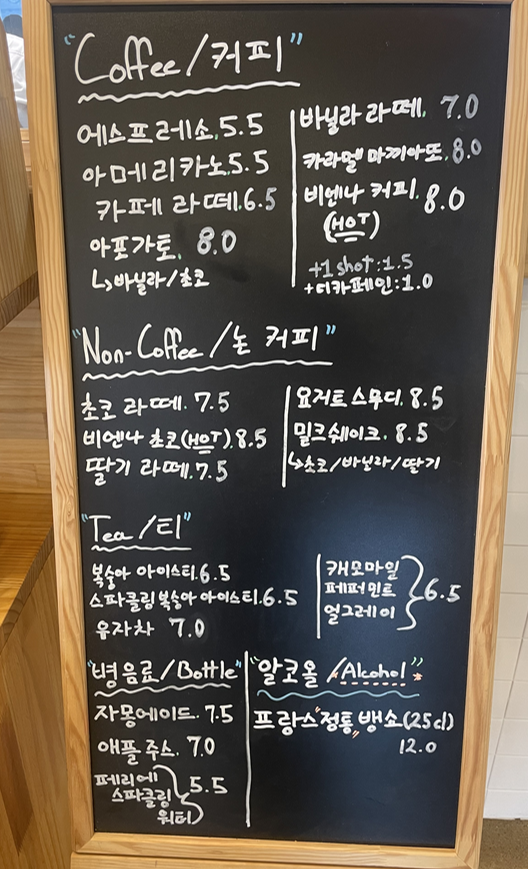 "Coffee/커피"
에스프레소.5.5
아메리카노.5.5
카페 라떼.6.5
아포가토. 8.0
↳바닐라/초코
바닐라 라떼. 7.0
카라멜 마끼아또.8.0
비엔나 커피.8.0
(HOT)
+1 shot:1.5
+디카페인:1.0
"Non-Coffee/논 커피"
초코 라떼. 7.5
비엔나 초코(HOT).8.5
딸기 라떼.7.5
요거트 스무디. 8.5
밀크쉐이크. 8.5
↳초코/바닐라/딸기
"Tea/티"
복숭아 아이스티.6.5
스파클링복숭아 아이스티.6.5
유자차 7.0
캐모마일
페퍼민트
얼그레이
6.5
"병음료/Bottle"
자몽에이드. 7.5
애플 주스. 7.0
페리에
스파클링
워터
5.5
"알코올/Alcohol"
프랑스"정통"뱅쇼(25cl)
12.0